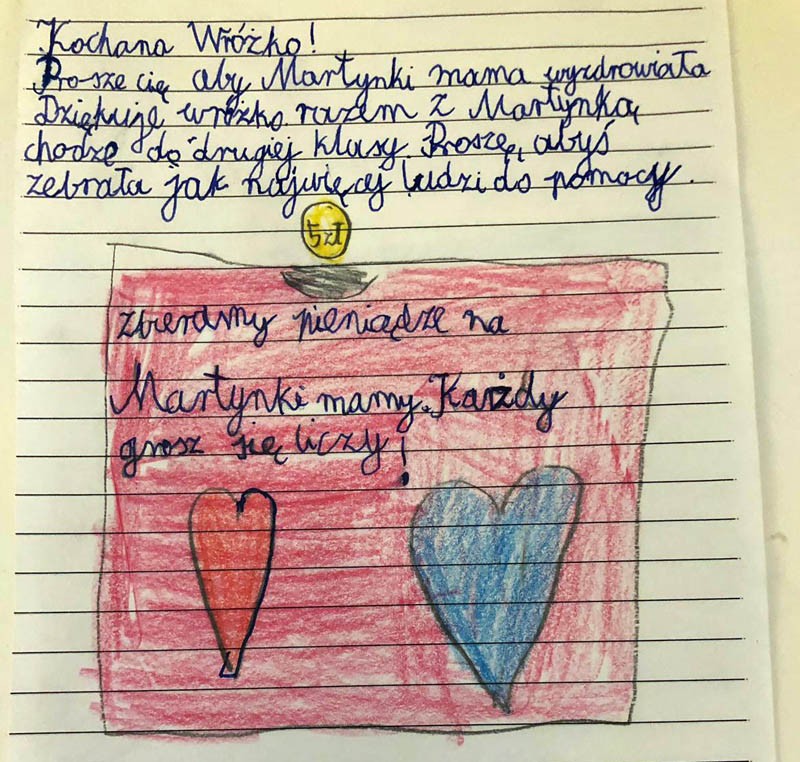 Kochana Wróżko!
Prosze cię aby Martynki mama wyzdrowiała
Dziękuję wróżko razem z Martynką
chodzę do drugiej klasy. Proszę, abyś
zebrała jak najwięcej ludzi do pomocy.
5zł
zbieramy pieniądze na
Martynki mamy. Każdy
grosz się liczy!